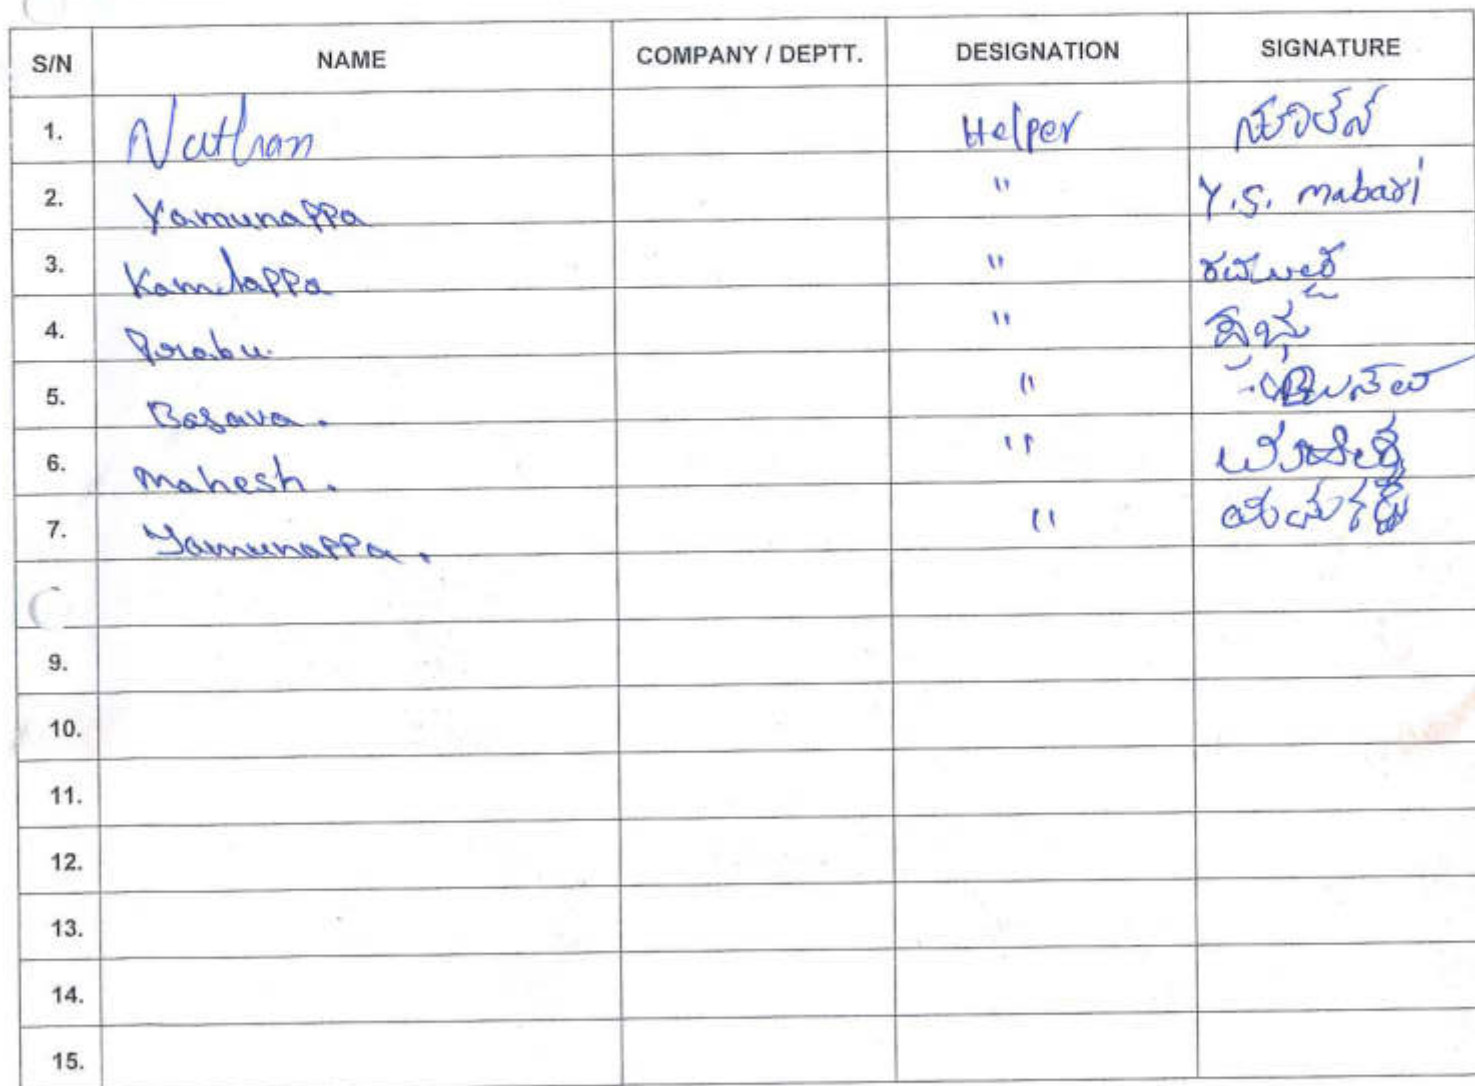 S/N NAME COMPANY / DEPTT. DESIGNATION SIGNATURE
1. Nathan Helper
2. Yamunappa " Y.S. mabari
3. Kamlappa "
4. Prabu. " ಪ್ರಭು
5. Basava. "
6. Mahesh. "
7. Yamunappa. "
9.
10.
11.
12.
13.
14.
15.